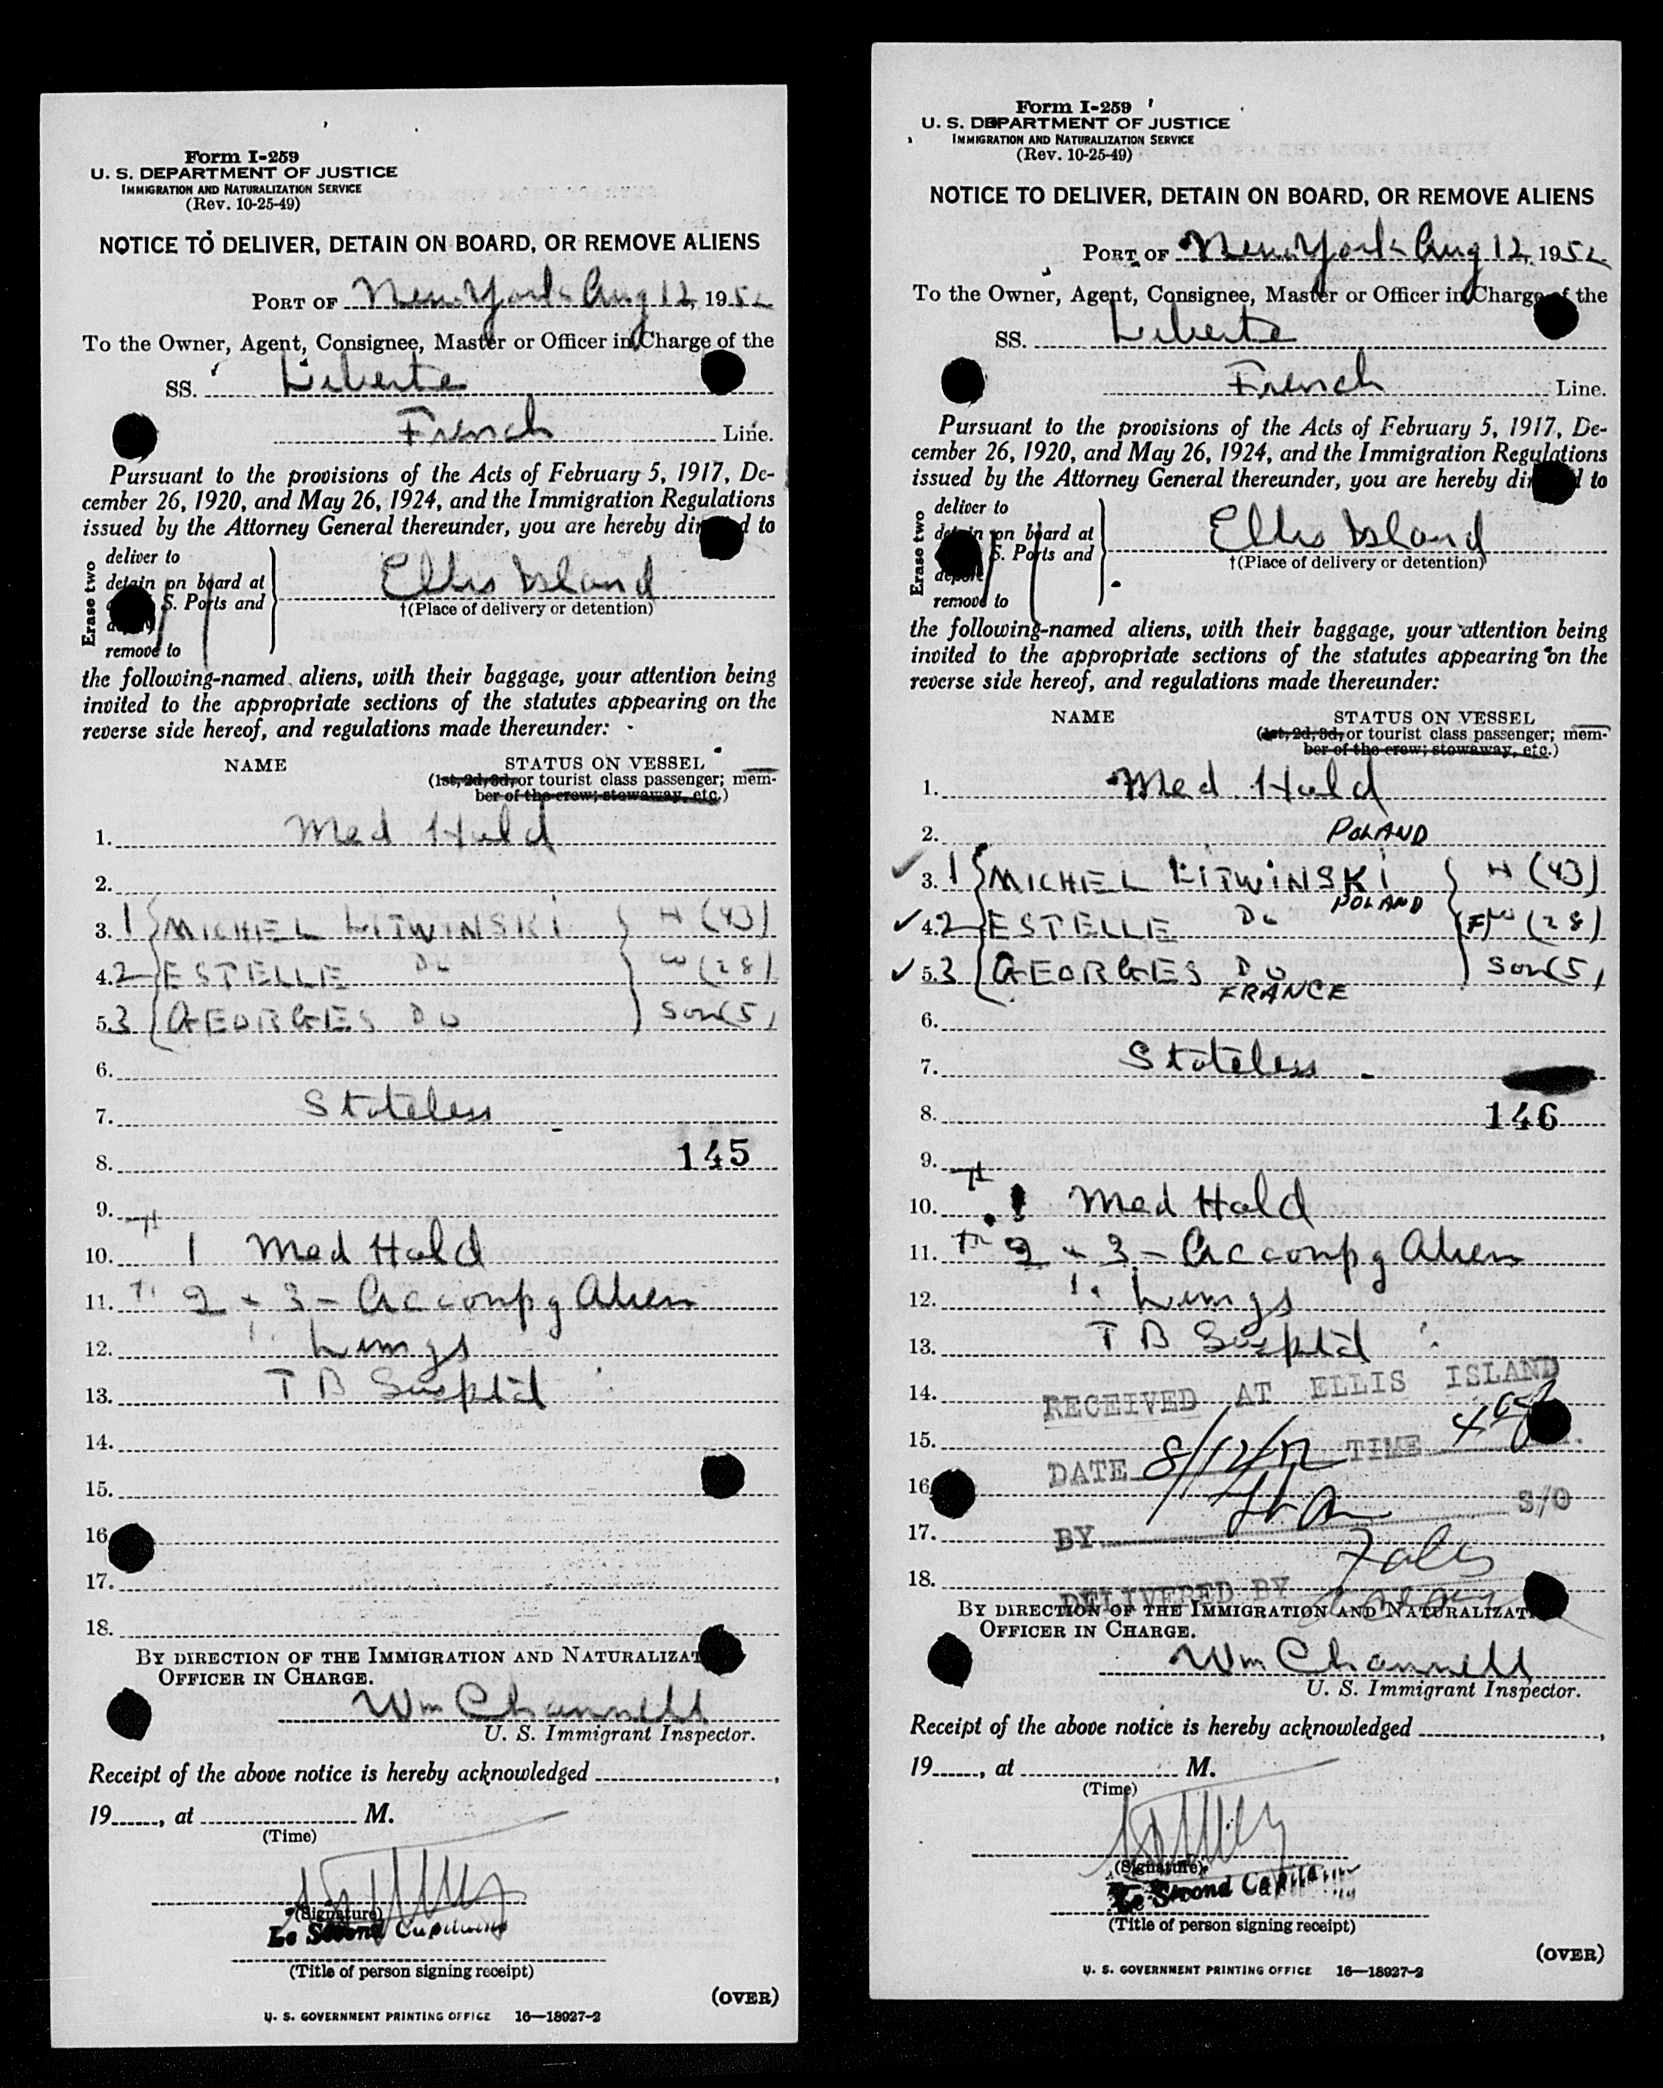 Form I-259
U. S. DEPARTMENT OF JUSTICE
IMMIGRATION AND NATURALIZATION SERVICE
(Rev. 10-25-49)
NOTICE TO DELIVER, DETAIN ON BOARD, OR REMOVE ALIENS
PORT OF New York Aug 12, 1952
To the Owner, Agent, Consignee, Master or Officer in Charge of the
SS. Liberte
French Line.
Pursuant to the provisions of the Acts of February 5, 1917, De-
cember 26, 1920, and May 26, 1924, and the Immigration Regulations
issued by the Attorney General thereunder, you are hereby directed to
Erase two
deliver to
detain on board at
S. Ports and
remove to
Ellis Island
†(Place of delivery or detention)
the following-named aliens, with their baggage, your attention being
invited to the appropriate sections of the statutes appearing on the
reverse side hereof, and regulations made thereunder:
NAME STATUS ON VESSEL
(1st, 2d, 3d, or tourist class passenger; mem-
ber of the crew; stowaway, etc.)
1. Med Hold
2.
3. 1 MICHEL LITWINSKI H (43)
4. 2 ESTELLE Do W (28)
5. 3 GEORGES DO Son (5)
6.
7. Stateless
8. 145
9.
10. 1 Med Hold
11. 2 + 3 - Accompg Alien
12. 1. Lungs
13. T B Suspected
14.
15.
16
17.
18.
BY DIRECTION OF THE IMMIGRATION AND NATURALIZAT
OFFICER IN CHARGE.
Wm Channell
U. S. Immigrant Inspector.
Receipt of the above notice is hereby acknowledged ,
19 , at M.
(Time)
(Signature)
Le Second Capitaine
(Title of person signing receipt)
(OVER)
U. S. GOVERNMENT PRINTING OFFICE 16—18927-2
Form I-259
U. S. DEPARTMENT OF JUSTICE
IMMIGRATION AND NATURALIZATION SERVICE
(Rev. 10-25-49)
NOTICE TO DELIVER, DETAIN ON BOARD, OR REMOVE ALIENS
PORT OF New York Aug 12, 1952
To the Owner, Agent, Consignee, Master or Officer in Charge of the
SS. Liberte
French Line.
Pursuant to the provisions of the Acts of February 5, 1917, De-
cember 26, 1920, and May 26, 1924, and the Immigration Regulations
issued by the Attorney General thereunder, you are hereby directed to
Erase two
deliver to
detain on board at
S. Ports and
deport
remove to
Ellis Island
†(Place of delivery or detention)
the following-named aliens, with their baggage, your attention being
invited to the appropriate sections of the statutes appearing on the
reverse side hereof, and regulations made thereunder:
NAME STATUS ON VESSEL
(1st, 2d, 3d, or tourist class passenger; mem-
ber of the crew; stowaway, etc.)
1. Med Hold
2. POLAND
3. 1 MICHEL LITWINSKI H (43)
POLAND
4. 2 ESTELLE Do W (28)
5. 3 GEORGES DO Son (5)
FRANCE
6.
7. Stateless
8. 146
9.
10. 1 Med Hold
11. 2 + 3 - Accompg Alien
12. 1. Lungs
13. T B Suspected
14. RECEIVED AT ELLIS ISLAND
15.
DATE 8/12/52 TIME
16
S/O
17.
BY
18.
DELIVERED BY
BY DIRECTION OF THE IMMIGRATION AND NATURALIZAT
OFFICER IN CHARGE.
Wm Channell
U. S. Immigrant Inspector.
Receipt of the above notice is hereby acknowledged ,
19 , at M.
(Time)
(Signature)
Le Second Capitaine
(Title of person signing receipt)
(OVER)
U. S. GOVERNMENT PRINTING OFFICE 16—18927-2